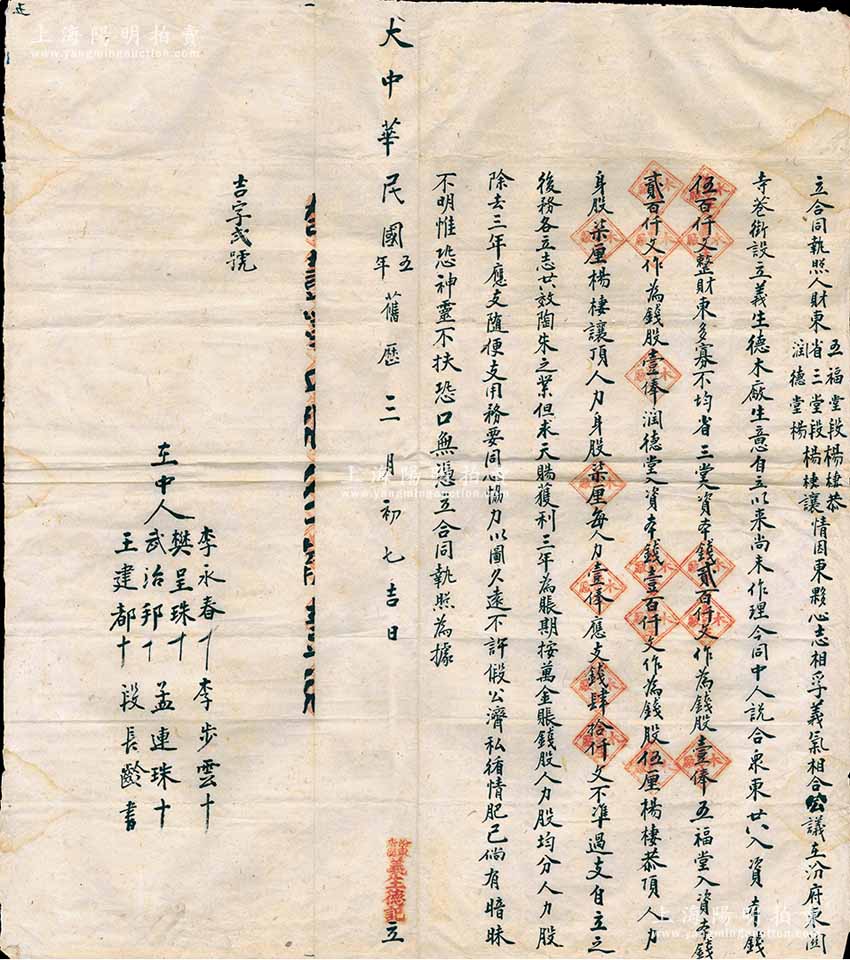 立合同執照人財東
五福堂段楊棲恭
省三堂段楊棟
潤德堂楊棲讓
情因東夥心志相孚義氣相合公議在汾府東關
寺巷街設立義生德木廠生意自立以來尚未作理今同中人說合衆東共入資本錢
伍百仟文整財東多寡不均省三堂入資本錢貳百仟文作為錢股壹俸五福堂入資本錢
貳百仟文作為錢股壹俸潤德堂入資本錢壹百仟文作為錢股伍厘楊棲恭頂人力
身股柒厘楊棲讓頂人力身股柒厘每人力壹俸應支錢肆拾仟文不準過支自立之
後務各立志共效陶朱之業但求天賜獲利三年為賬期按萬金賬錢股人力股均分人力股
除去三年應支隨便支用務要同心協力以圖久遠不許假公濟私循情肥己倘有暗昧
不明惟恐神靈不扶恐口無憑立合同執照為據
大中華民國五年舊歷三月初七吉日
義生德記 立
吉字弍號
在中人
李永春十 李步雲十
樊呈珠十
武治邦十 孟連珠十
王建都十 段長齡書
上海陽明拍賣
www.yangmingauction.com